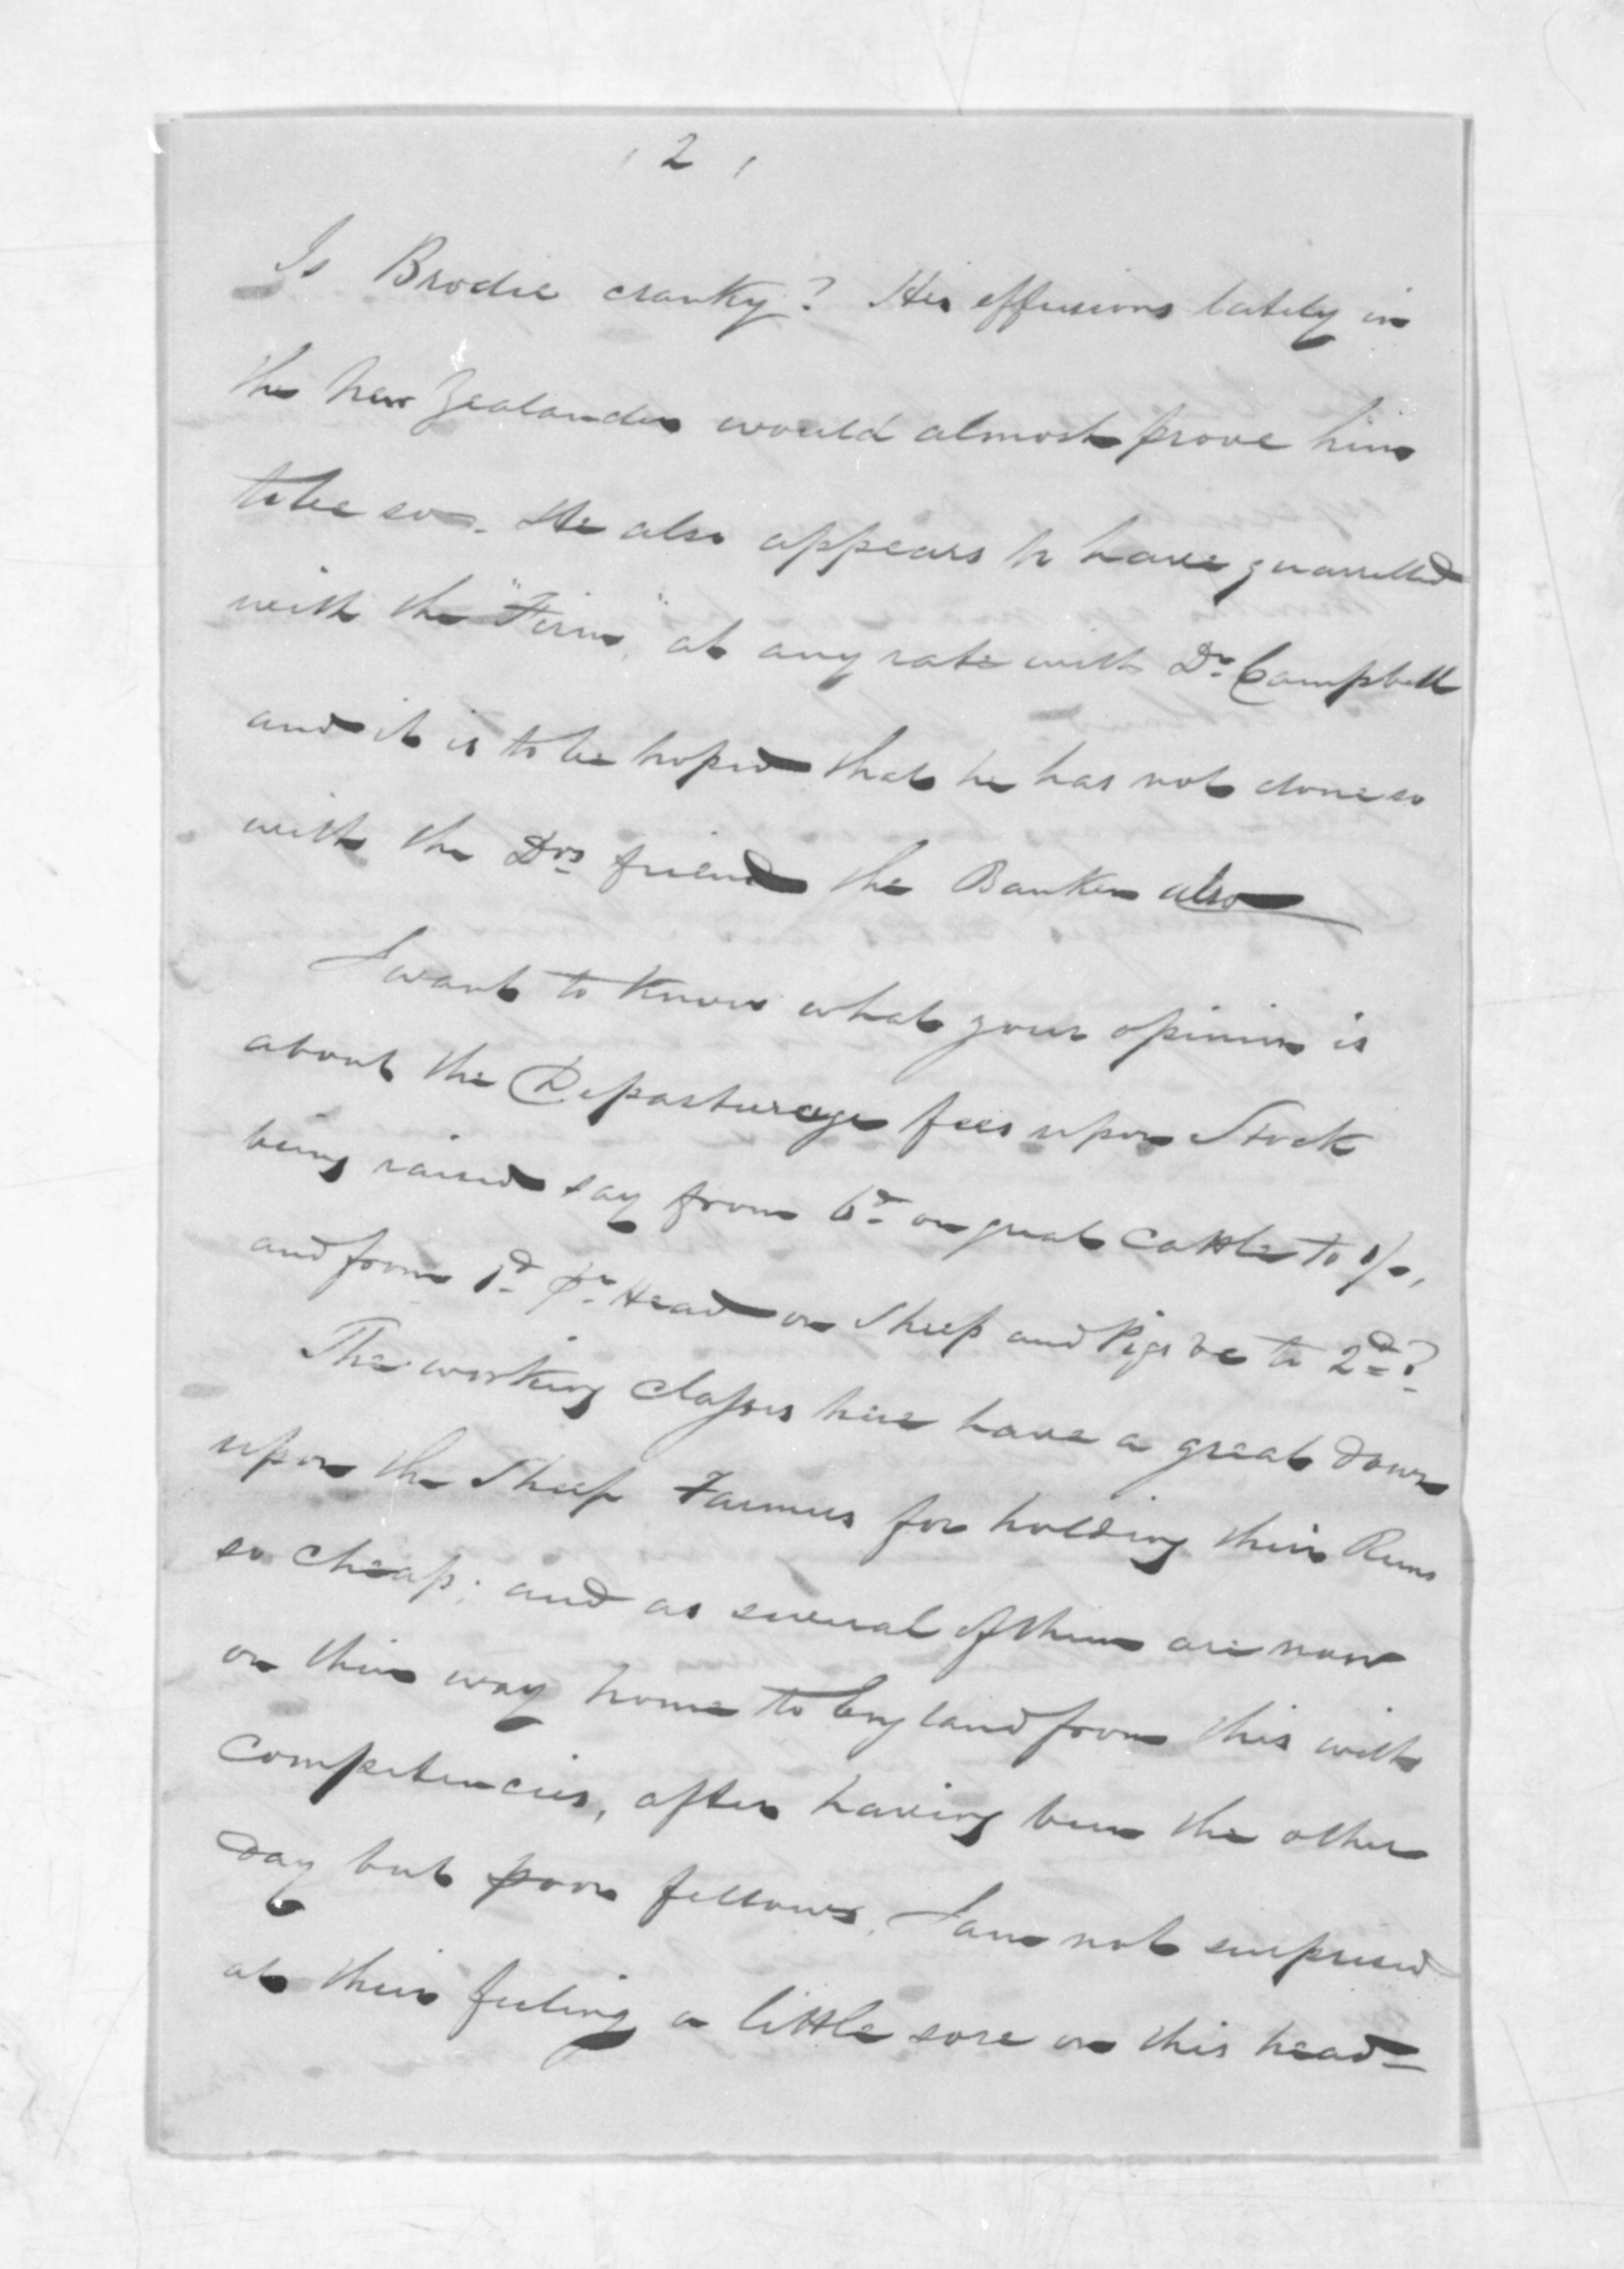 , 2 ,
Is Brodie cranky? His effusions lately in
the New Zealander would almost prove him
to be so. He also appears to have quarrelled
with the "Firm", at any rate with Dr. Campbell
and it is to be hoped that he has not done so
with the Drs friend the Banker also
I want to know what your opinion is
about the Depasturage fees upon Stock
being raised say from 6d on great Cattle to 1/-,
and from 1d pr Head on Sheep and Pigs &c to 2d?
The working classes here have a great down
upon the Sheep Farmers for holding their Runs
so cheap; and as several of them are now
on their way home to England from this with
Competencies, after having been the other
day but poor fellows. I am not surprised
at their feeling a little sore on this head